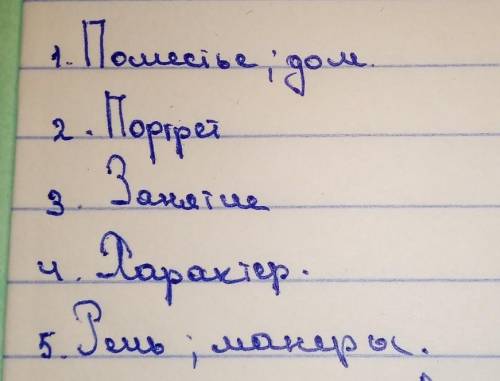 1. Поместье; дом.
2. Портрет
3. Занятие
4. Характер.
5. Речь; манеры.